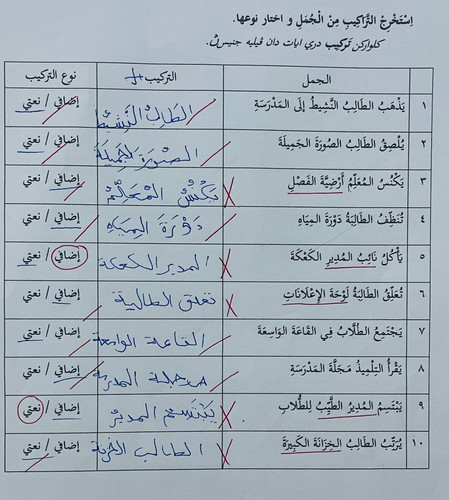 اِسْتَخْرِجِ التَّرَاكِيبَ مِنَ الْجُمَلِ وَ اخْتَارَ نَوْعَهَا.
كلواركن تَرْكِيب دري ايات دان ڤيليه جنيسڽ.
الجمل التركيب نوع التركيب
١ يَذْهَبُ الطَّالِبُ النَّشِيطُ إِلَى الْمَدْرَسَةِ الطَالِبُ النَّشِيْطُ إضافي / نعتي
٢ يُلْصِقُ الطَّالِبُ الصُّورَةَ الجَمِيلَةَ الصُّوْرَةَ الجَمِيْلَةَ إضافي / نعتي
٣ يَكْنُسُ المُعَلِّمُ أَرْضِيَّةَ الفَصْلِ يَكْنُسُ الْمُعَلِّمُ إضافي / نعتي
٤ تُنَظِّفُ الطَّالِبَةُ دَوْرَةَ المِيَاهِ دَوْرَةَ المِيَاهِ إضافي / نعتي
٥ يَأْكُلُ نَائِبُ المُدِيرِ الكَعْكَةَ المدير الكعكة إضافي / نعتي
٦ تُعَلِّقُ الطَّالِبَةُ لَوْحَةَ الإِعْلَانَاتِ تعلق الطالبة إضافي / نعتي
٧ يَجْتَمِعُ الطُّلَّابُ فِي القَاعَةِ الوَاسِعَةِ القاعة الواسعة إضافي / نعتي
٨ يَقْرَأُ التِلْمِيذُ مَجَلَّةَ المَدْرَسَةِ مجلة المدرسة إضافي / نعتي
٩ يَبْتَسِمُ المُدِيرُ الطَّيِّبُ لِلطُّلَابِ يَبْتَسِمُ المديرُ إضافي / نعتي
١٠ يُرَتِّبُ الطَّالِبُ الخِزَانَةَ الكَبِيرَةَ الطالب إضافي / نعتي